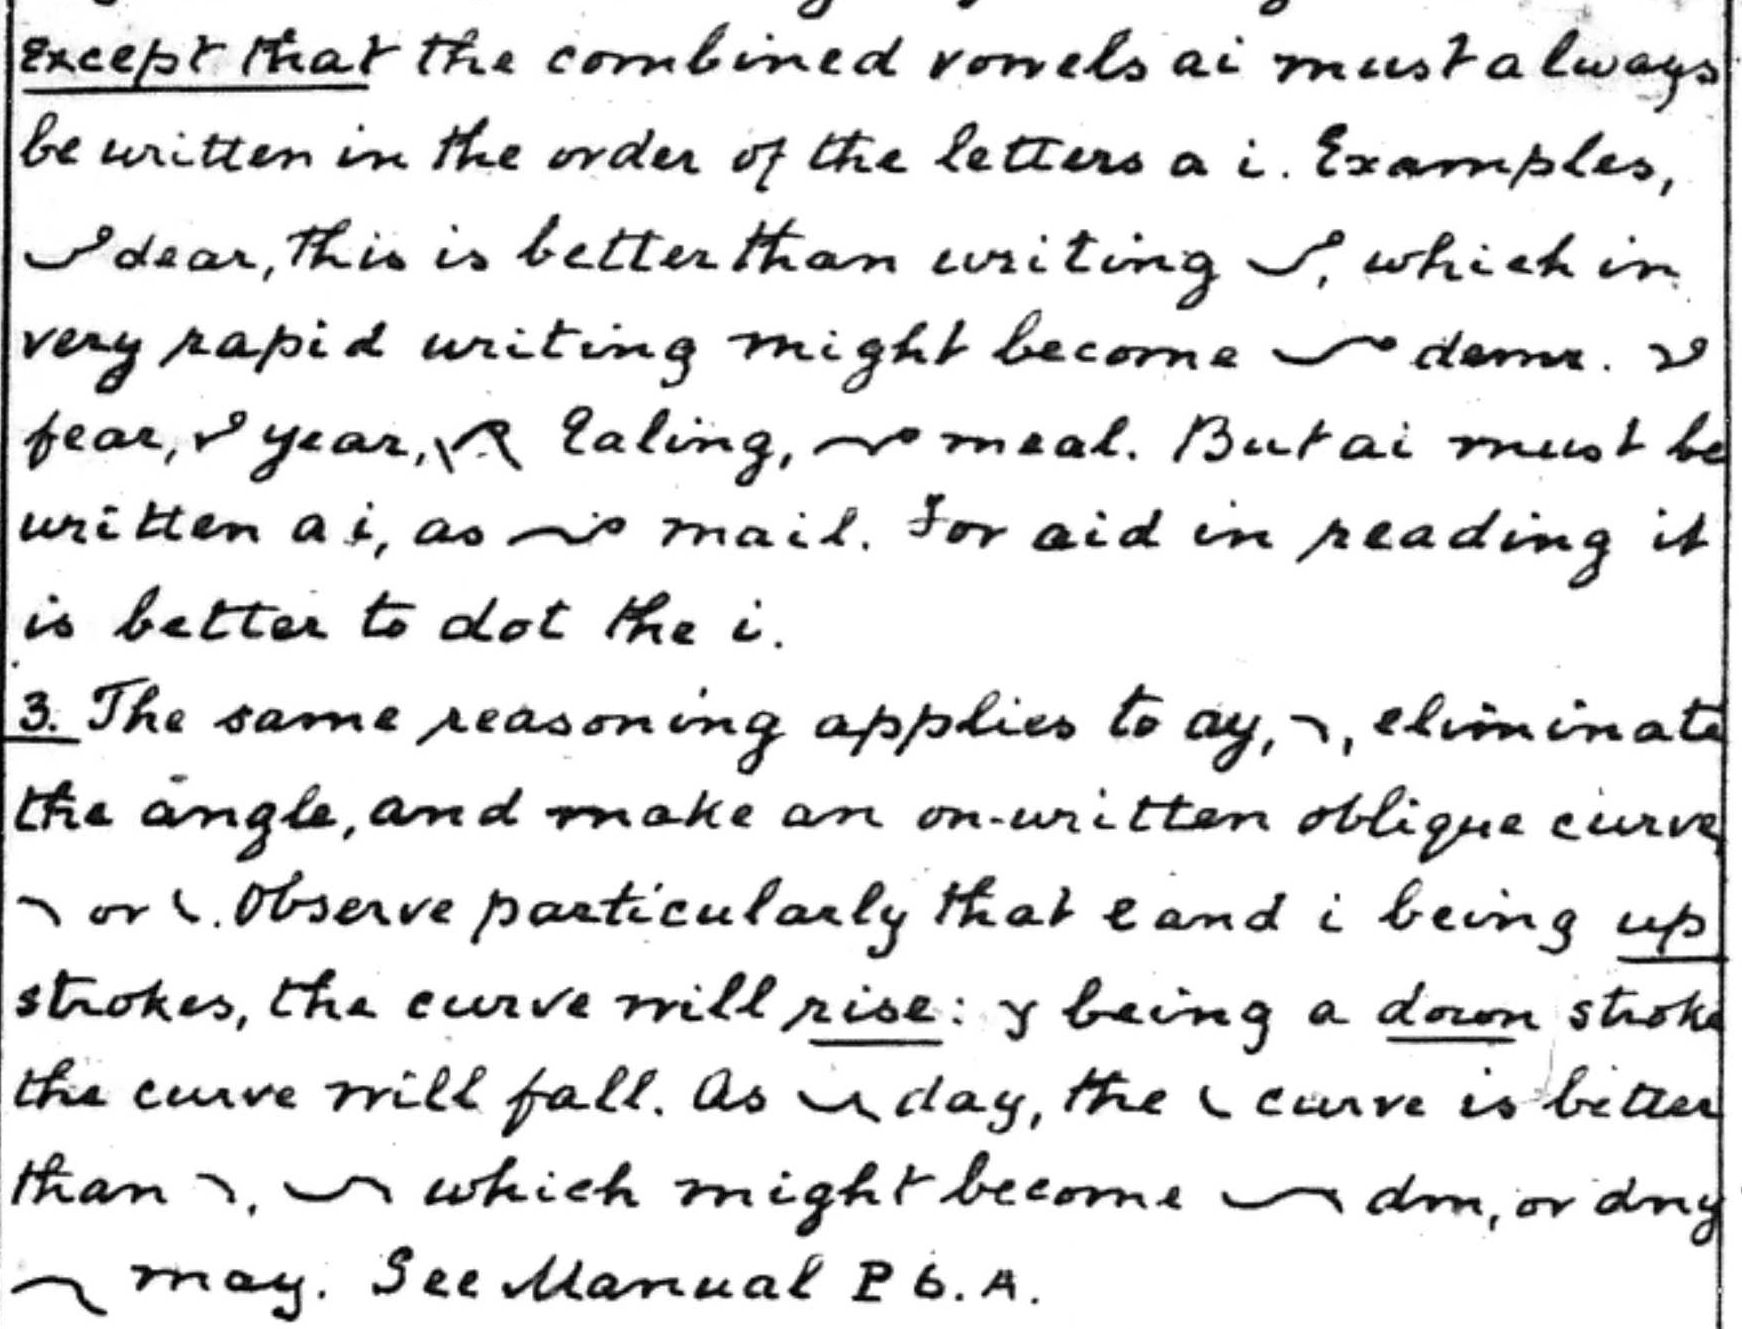 Except that the combined vowels ai must always
be written in the order of the letters a i. Examples,
dear, this is better than writing , which in
very rapid writing might become demr.
fear, year, Ealing, meal. But ai must be
written a i, as mail. For aid in reading it
is better to dot the i.
3. The same reasoning applies to ay, , eliminate
the angle, and make an on-written oblique curve
or . Observe particularly that e and i being up
strokes, the curve will rise: y being a down stroke
the curve will fall. As day, the curve is better
than , which might become dm, or dny
may. See Manual P 6. A.